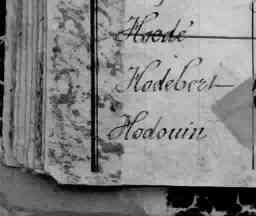 Hoedé
Hodebert
Hodouin